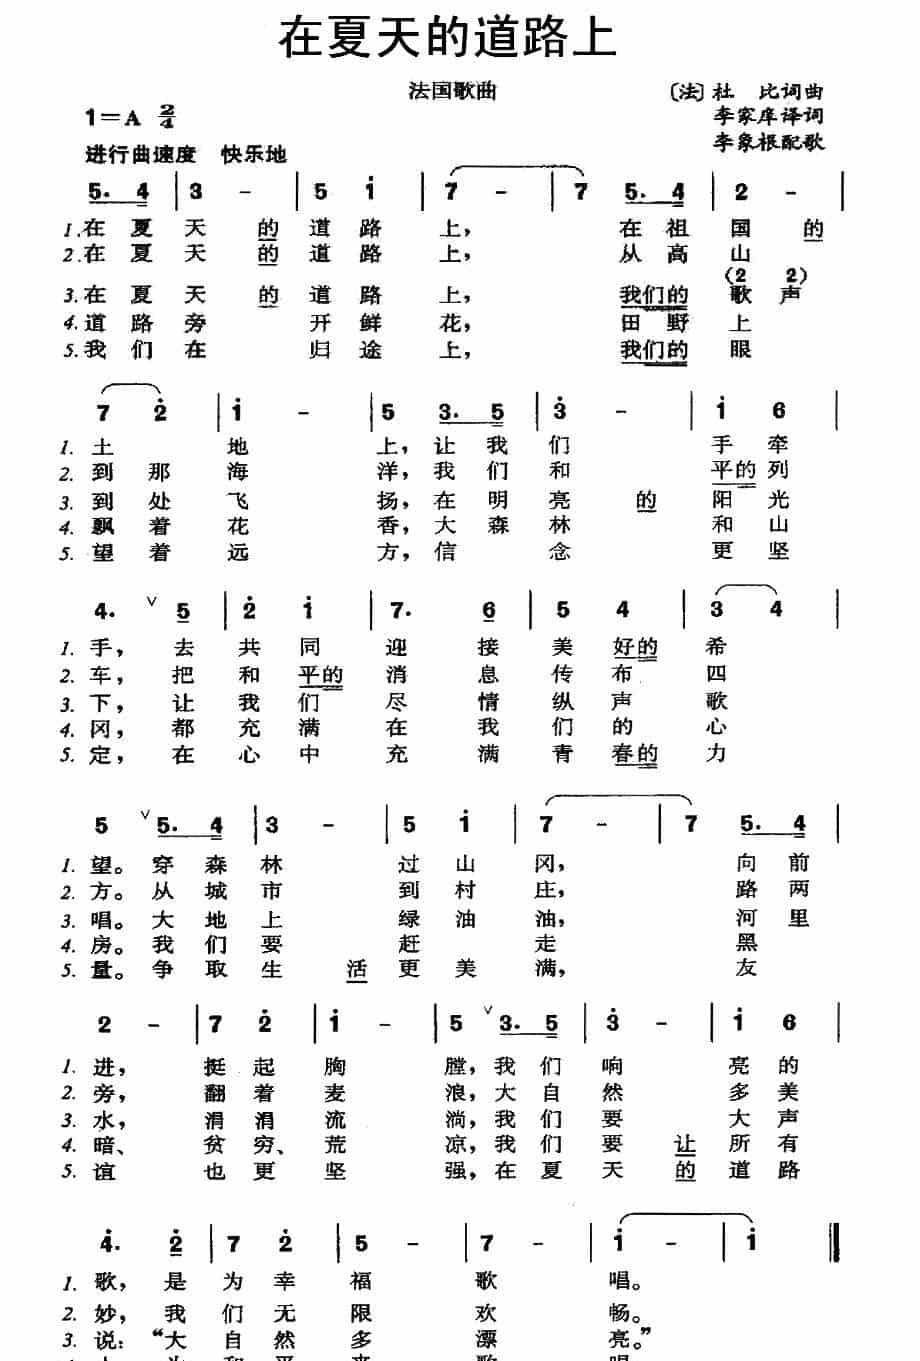 在夏天的道路上
法国歌曲
〔法〕杜 比词曲
1=A 2/4
李家庠译词
李象根配歌
进行曲速度 快乐地
5. 4 | 3 - | 5 i | 7 - | 7 5. 4 | 2 - |
1. 在夏天的道路上， 在祖国的
2. 在夏天的道路上， 从高山
(2 2)
3. 在夏天的道路上， 我们的歌声
4. 道路旁开鲜花， 田野上
5. 我们在归途上， 我们的眼
7 2̇ | i - | 5 3. 5 | 3̇ - | i 6 |
1. 土地上，让我们手牵
2. 到那海洋，我们和平的列
3. 到处飞扬，在明亮的阳光
4. 飘着花香，大森林和山
5. 望着远方，信念更坚
4. ∨ 5 | 2̇ i | 7. 6 | 5 4 | 3 4 |
1. 手，去共同迎接美好的希
2. 车，把和平的消息传布四
3. 下，让我们尽情纵声歌
4. 冈，都充满在我们的心
5. 定，在心中充满青春的力
5 ∨ 5. 4 | 3 - | 5 i | 7 - | 7 5. 4 |
1. 望。穿森林过山冈， 向前
2. 方。从城市到村庄， 路两
3. 唱。大地上绿油油， 河里
4. 房。我们要赶走黑
5. 量。争取生活更美满， 友
2 - | 7 2̇ | i - | 5 ∨ 3. 5 | 3̇ - | i 6 |
1. 进， 挺起胸膛，我们响亮的
2. 旁， 翻着麦浪，大自然多美
3. 水， 涓涓流淌，我们要大声
4. 暗、 贫穷、荒凉，我们要让所有
5. 谊也更坚强，在夏天的道路
4̇. 2̇ | 7 2̇ | 5 - | 7 - | i - | i ‖
1. 歌，是为幸福歌唱。
2. 妙，我们无限欢畅。
3. 说：“大自然多漂亮。”